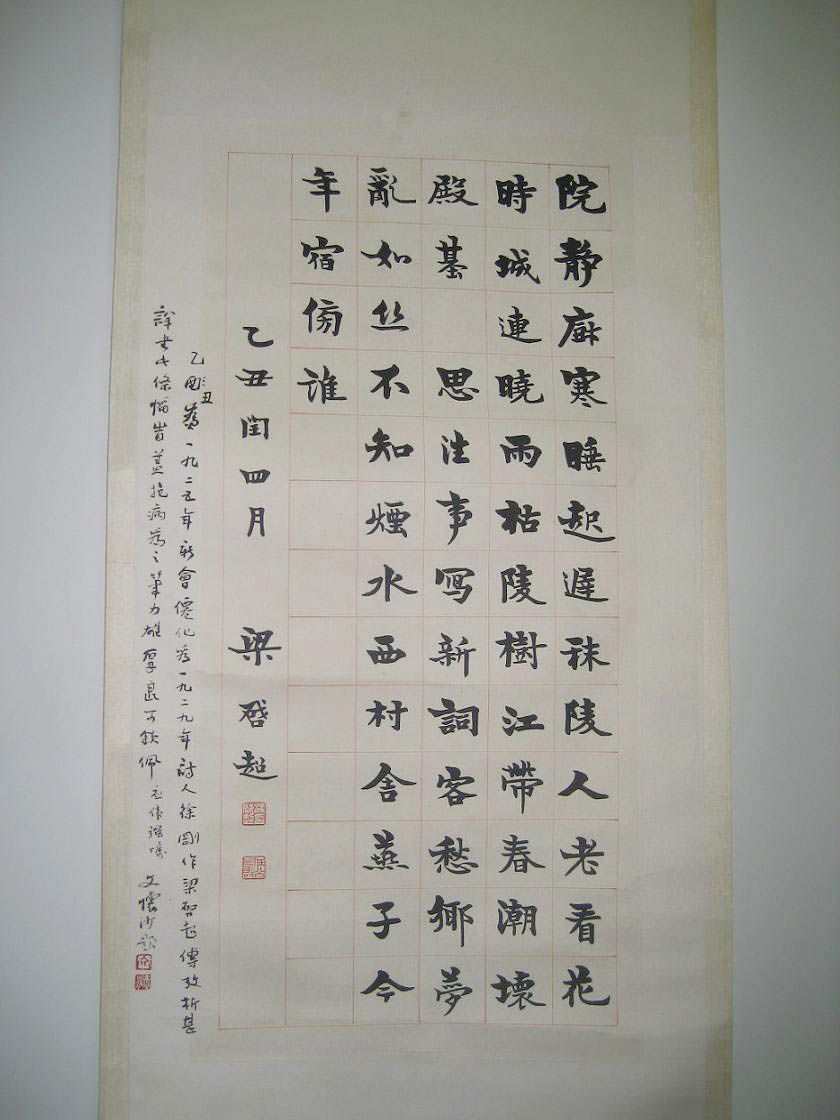 院靜廚寒睡起遲秣陵人老看花
時城連曉雨枯陵樹江帶春潮壞
殿基 思往事寫新詞客愁鄉夢
亂如丝不知煙水西村舍燕子今
年宿傍誰
乙丑閏四月 梁啓超
乙丑為一九二五年新會僊化為一九二九年詩人徐剛作梁啓超傳攷析甚
詳書此條幅時蓋抱病為之筆力雄厚良可欽佩 文懷沙題